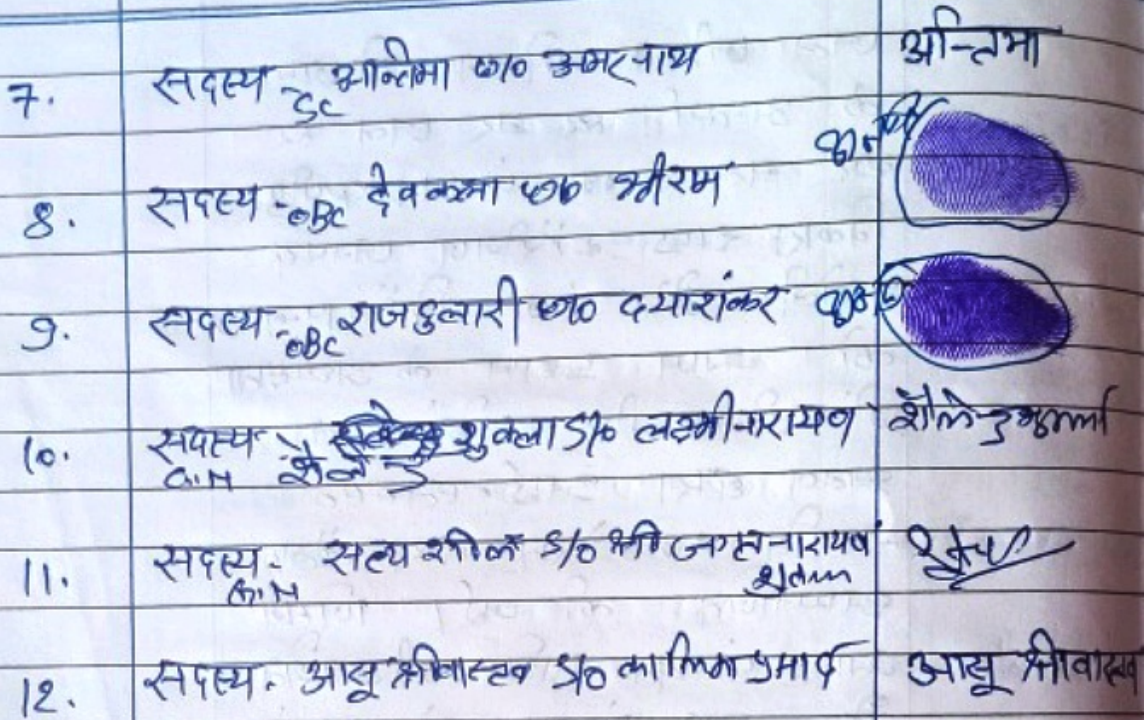 7. सदस्य SC अन्तिमा w/o अमरनाथ अन्तिमा
8. सदस्य - OBC देवकली w/o श्रीराम
9. सदस्य - OBC राजदुलारी w/o दयाशंकर
10. सदस्य G.N शैलेन्द्र शुक्ला S/o लक्ष्मीनारायण शैलेन्द्र शुक्ला
11. सदस्य - G.N सत्य शील S/o श्री जगतनारायण शुक्ल
12. सदस्य - आसू श्रीवास्तव S/o कालिका प्रसाद आसू श्रीवास्तव